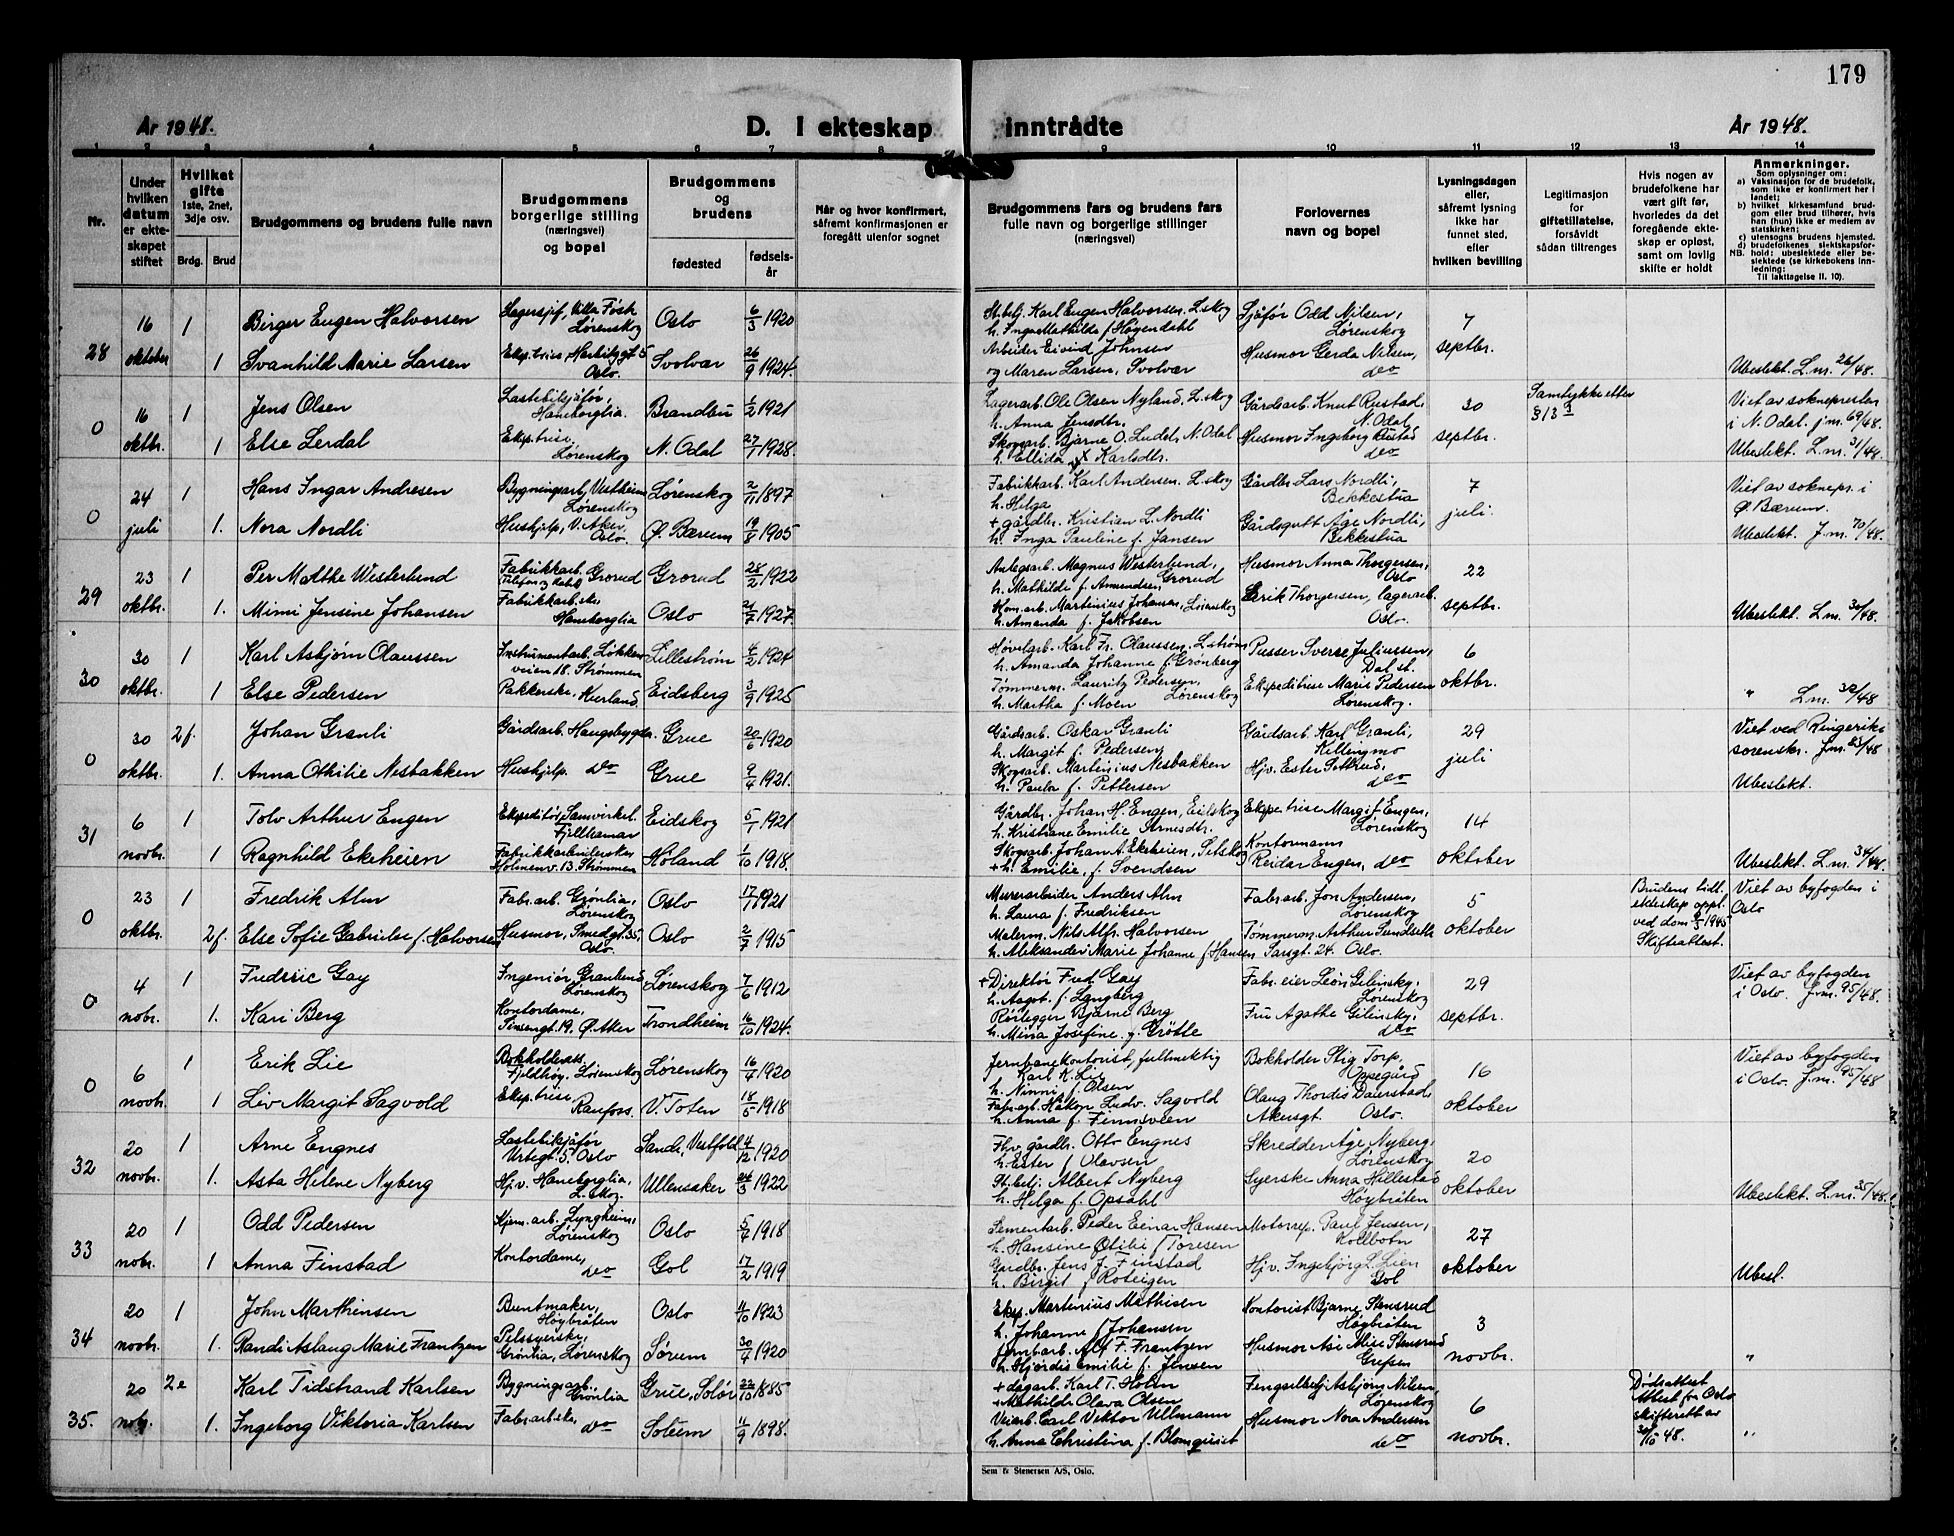 179
År 1948.
D. I ekteskap inntrådte
År 1948.
1 2 3 4 5 6 7 8 9 10 11 12 13 14
Nr.
Under hvilken datum er ekteskapet stiftet
Hvilket gifte 1ste, 2net, 3dje osv.
Brdg. Brud
Brudgommens og brudens fulle navn
Brudgommens borgerlige stilling (næringsvei) og bopel
Brudgommens og brudens
fødested
fødselsår
Når og hvor konfirmert, såfremt konfirmasjonen er foregått utenfor sognet
Brudgommens fars og brudens fars fulle navn og borgerlige stillinger (næringsvei)
Forlovernes navn og bopel
Lysningsdagen eller, såfremt lysning ikke har funnet sted, efter hvilken bevilling
Legitimasjon for giftetillatelse, forsåvidt sådan tiltrenges
Hvis nogen av brudefolkene har vært gift før, hvorledes da det foregående ekteskap er opløst, samt om lovlig skifte er holdt
Anmerkninger.
Som oplysninger om:
a) Vaksinasjon for de brudefolk, som ikke er konfirmert her i landet;
b) hvilket kirkesamfund brudgom eller brud tilhører, hvis han (hun) ikke er medlem av statskirken;
c) utensogns brudens hjemsted.
d) brudefolkenes slektskapsforhold: ubeslektede eller beslektede (se kirkebokens innledning:
NB.
Til iakttagelse II. 10).
28
16 oktober 1 Birger Eugen Halvorsen Lagersjef, Villa Fósk Lørenskog Oslo 6/3 1920
1 Svanhild Marie Larsen Eksp.trise, Oslo. Svolvær 26/9 1924.
St.betj. Karl Eugen Halvorsen, L.skog
h. Inga Mathilde f. Høgendahl
Arbeider Eivind Johnsen
og Maren Larsen, Svolvær
Sjåfør Odd Nilsen, Lørenskog
Husmor Gerda Nilsen, do
7 septbr.
Ubeslekt. L.m. 26/48.
0
16 oktbr. 1 Jens Olsen Lastebilsjåfør, Haneborglia. Brandbu 1/2 1921
1 Else Lerdal Eksp.trise, Lørenskog N. Odal 27/1 1928.
Lagerarb. Ole Olsen Nyland, L.skog
h. Anna Jensdtr.
Skogsarb. Bjarne O. N. Odal
h. Ellida Karlsdtr.
Gårdsarb. Knut Rustad, N. Odal
Husmor Ingeborg Rustad do
30 septbr.
Samtykke etter § 13
Viet av soknepresten i N. Odal. f.m. 69/48.
Ubeslekt. L.m. 31/48.
0
24 juli 1 Hans Ingar Andresen Bygningsarb, Vestheim Lørenskog Lørenskog 2/11 1897
1. Nora Nordli Hushjelp, V. Aker, Oslo. Ø. Bærum 19/8 1905
Fabrikkarb. Karl Andersen, L.skog
h. Helga
+ gårdbr. Kristian L. Nordli
h. Inga Pauline f. Jansen
Gårdbr Lars Nordli, Bekkestua
Gårdsgutt Åge Nordli, Bekkestua
7 juli.
Viet av soknepr. i Ø. Bærum.
Ubeslekt. J.m. 70/48.
29
23 oktbr. 1 Per Malthe Westerlund Fabrikkarb. Grorud Grorud 28/2 1922
1. Mimi Jensine Johansen Fabrikkarb.ske, Haneborglia Oslo 21/7 1927
Anlegsarb. Magnus Westerlund,
h. Mathilde f. Amundsen, Grorud
Kom.arb. Martinius Johansen, Lørenskog
h. Amanda f. Jakobsen
Husmor Anna Thorgersen, Oslo
Erik Thorgersen, lagerarb. Oslo.
22 septbr.
Ubeslekt. L.m. 30/48.
30
30 oktbr. 1 Karl Asbjørn Olaussen Instrumentarb. Løkkenveien 18. Strømmen Lillestrøm 4/2 1924
1 Else Pedersen Pakkerske, Kurland Eidsberg 3/9 1925
Høvelarb. Karl Fr. Olaussen, L.strøm
h. Amanda Johanne f. Grønberg
Tømmerm. Lauritz Pedersen, Lørenskog
h. Martha f. Moen
Pusser Sverre Juliussen, Dal st.
Ekspeditrise Marie Pedersen Lørenskog.
6 oktbr.
" L.m. 32/48
0
30 oktbr. 2f. Johan Granli Gårdsarb. Haugsbygda. Grue 20/6 1920
1. Anna Othilie Nesbakken Hushjelp. do Grue 9/4 1921.
Gårdsarb. Oskar Granli
h. Margit f. Pedersen
Skogsarb. Martinius Nesbakken
h. Paula f. Pettersen
Gårdsarb. Karl Granli, Killingmo
Hjv. Ester do
29 juli
Viet ved Ringerike sorenskr. J.m. 83/48
Ubeslekt.
31
6 novbr. 1 Tolv Arthur Engen Ekspeditør, Samvirkel. Fjellhamar Eidskog 5/1 1921
1 Ragnhild Ekeheien Fabrikkarbeiderske Holmenv. 13. Strømmen Høland 1/10 1918.
Gårdbr. Johan H. Engen, Eidskog
h. Kristiane Emilie Arnesdtr.
Skogsarb. Johan A. Ekeheien, Setskog
+ h. Emilie, f. Svendsen
Ekspe.trise Margit Engen, Lørenskog
Kontormann Reidar Engen, do
14 oktober
Ubeslekt. L.m. 34/48.
0
23 oktbr. 1 Fredrik Alm Fabr.arb. Grønlia, Lørenskog Oslo 17/1 1921
2f. Else Sofie Gabrielse f. Halvorsen Husmor, Smedgt. 35, Oslo. Oslo 2/7 1915
Murerarbeider Anders Alm
h. Laura f. Fredriksen
Malerm. Nils Alfr. Halvorsen
h. Aleksandra Marie Johanne f. Hansen
Fabr.arb. Jon Andersen, Lørenskog
Tømmerm. Arthur Sundseth Sarsgt. 24. Oslo.
5 oktober
Brudens tidl. ekteskap oppl. ved dom 1945 Skifteattest.
Viet av byfogden i Oslo
0
4 nobr. 1 Frederic Gay Ingeniør, Granlund Lørenskog Lørenskog 7/6 1912
1. Kari Berg Kontordame, Sinsengt. 19. Ø. Aker Trondheim 16/10 1924.
+ Direktør Fred Gay
h. Aagot f. Langberg
Rørlegger Bjarne Berg
h. Mina Josefine f. Grøtte
Fabr.eier Leon Gilinsky, Lørenskog
Fru Agathe Gilinsky, do
29 septbr.
Viet av byfogden i Oslo. J.m. 95/48.
0
6 novbr. 1 Erik Lie Bokholderass. Fjeldhøy, Lørenskog Lørenskog 16/4 1920
1 Liv Margit Sagvold Eksp.trise, Raufoss. V. Toten 18/5 1918
Jernbanekontorist, fullmektig Karl K. Lie
h. Ninni f. Olsen
Fabr.arb. Håkon Ludv. Sagvold
h. Anna f. Finnsveen
Bokholder Stig Torp, Oppegård
Olaug Thordis Daverstad Akersgt. Oslo.
16 oktober
Viet av byfogden i Oslo. J.m. 95/48
32
20 novbr. 1 Arne Engnes Lastebilsjåfør Urtegt. 5. Oslo Sande, Vestfold 4/12 1920
1. Asta Helene Nyberg Hj.v. Haneborglia, L.skog. Ullensaker 24/3 1922
Fhv. gårdbr. Otto Engnes
h. Ester f. Olavsen
St.betj. Albert Nyberg
h. Helga f. Opsahl
Skredder Åge Nyberg, Lørenskog
Syerske Anna Hillestad Høybråten
20 oktober
Ubeslekt. L.m. 35/48.
33
20 nobr. 1 Odd Pedersen Kjem.arb. Lyngheim, Lørenskog Oslo 5/4 1918
1 Anna Finstad Kontordame, do Gol 17/2 1919
Sementarb. Peder Einar Hansen
h. Hansine Otilie f. Toresen
Gardbr. Jens J. Finstad
h. Birgit f. Roteigen
Motorrep. Paul Jensen, Kolbotn
Hjv. Ingebjørg L. Lien Gol
27 oktober
Ubesl.
34
20 novbr. 1 John Marthinsen Buntmaker, Høybråten Oslo 4/10 1923
1. Randi Aslaug Marie Frantzen Pelssyerske, Grønlia, Lørenskog Sørum 30/4 1920
Eksp. Martinius Mathisen
h. Johanne f. Johansen
Jernb.arb. Alf F. Frantzen
h. Hjørdis Emilie f. Jensen
Kontorist Bjarne Stensrud Høybråten
Husmor Stensrud Grefsen
3 novbr.
"
35.
20 nobr. 2e Karl Tidstrand Karlsen Bygningsarb. Grønlia Grue, Solør 22/10 1885
1. Ingeborg Viktoria Karlsen Fabr.arb.ske, do 11/9 1898.
+ dagarb. Karl T. Holm
+ Mathilde Olava Olsen
Veiarb. Carl Viktor Ullmann
h. Anna Christina f. Blomquist
Fengselbetj. Asbjørn Nilsen, Lørenskog
Husmor Nora Andersen do
6 novbr.
Dødsattest Attest fra Oslo skifterett av 30/10 48.
"
Sem & Stenersen A/S, Oslo.